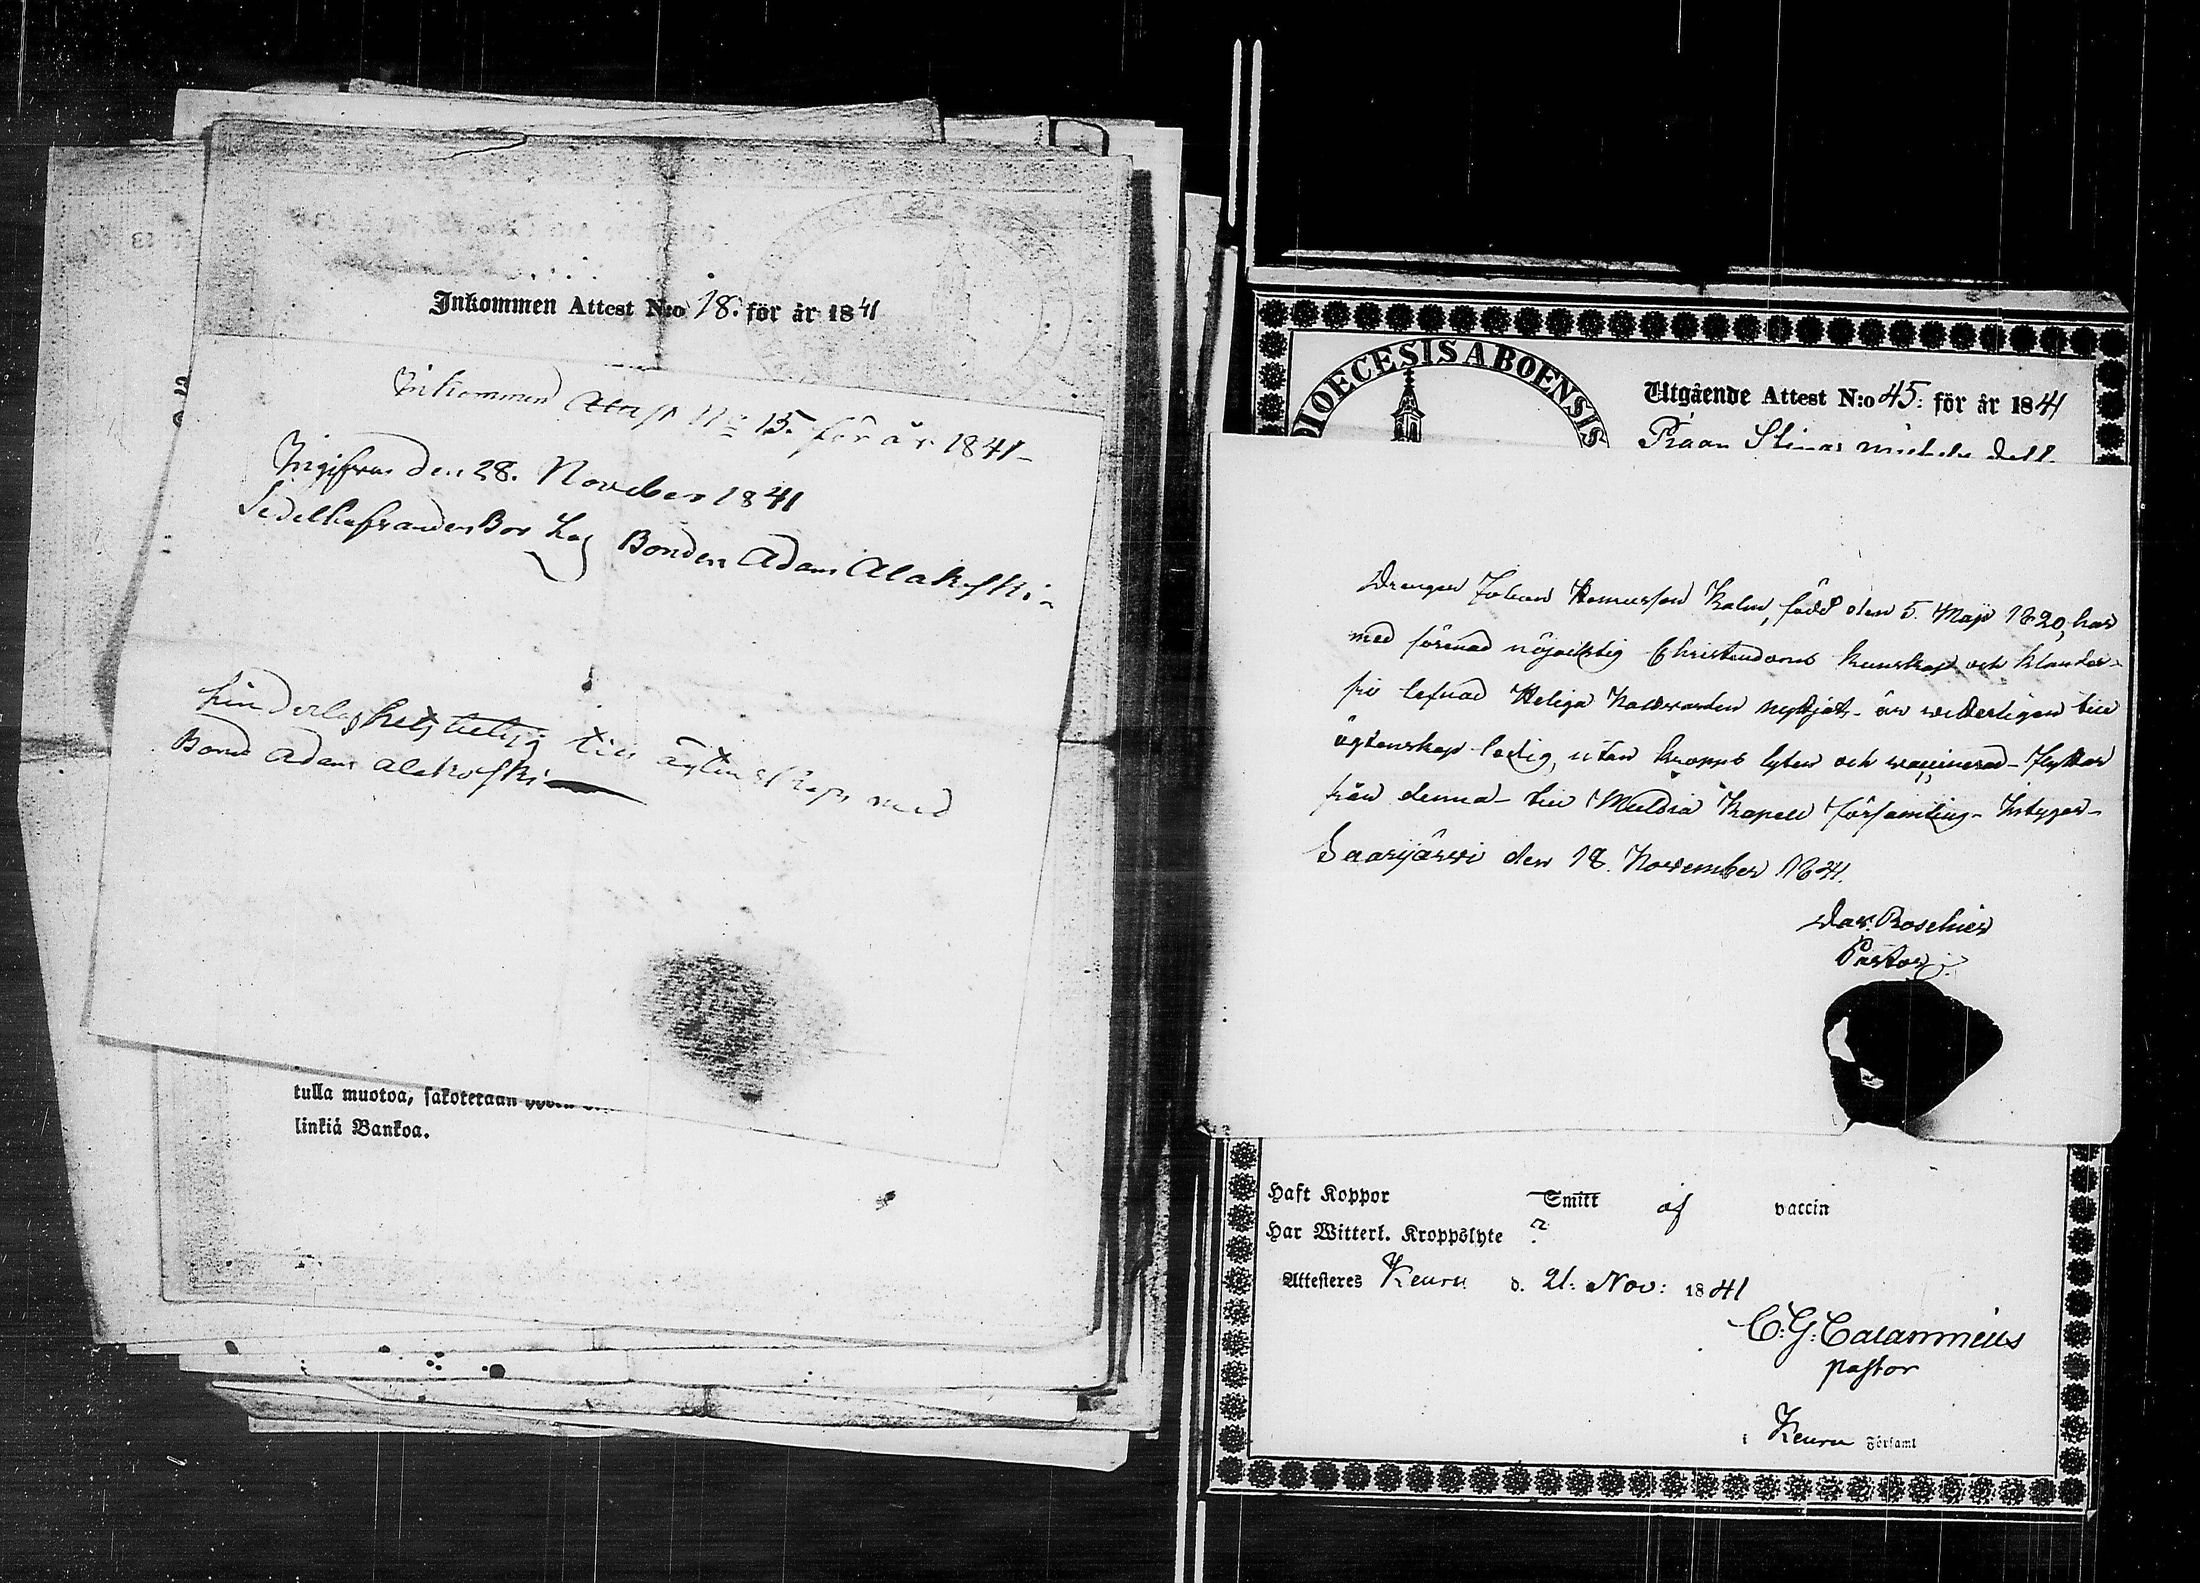 Inkommen Attest N:o 18. för år 1841
Inkommen Attest No 15. för år 1841-
Ingifven den 28. November 1841
Sedelhafvanden Bor hos Bonden Adam Alakoski-
hinderlöshet till ägtenskap med
Bond Adam Alakoski
tulla muotoa, sakotetaan
linkiä Bankoa.
DIOECESIS ABOENSIS
Utgående Attest N:o 45: för år 1841
Pigan Stina
Drengen Johan Kalm, född den 5. Maji 1820, har
med förenad nöjaktig Christendoms kunskap och klander-
fri lefnad Heliga Nattvarden nyttjat- är vitterligen till
ägtenskap ledig, utan kropps lyten och vaccinerad- flyttar
från denna- till Multia Kapell församling- intygar-
Saarijärvi den 18. November 1841.
Dav. Roschier
Pastor.
Haft Koppor Smitt af vaccin
Har Witterl. Kroppslyte ?
Attesteres Keuru d. 21: Nov: 1841
C: G: Calamnius
pastor
i Keuru Församl